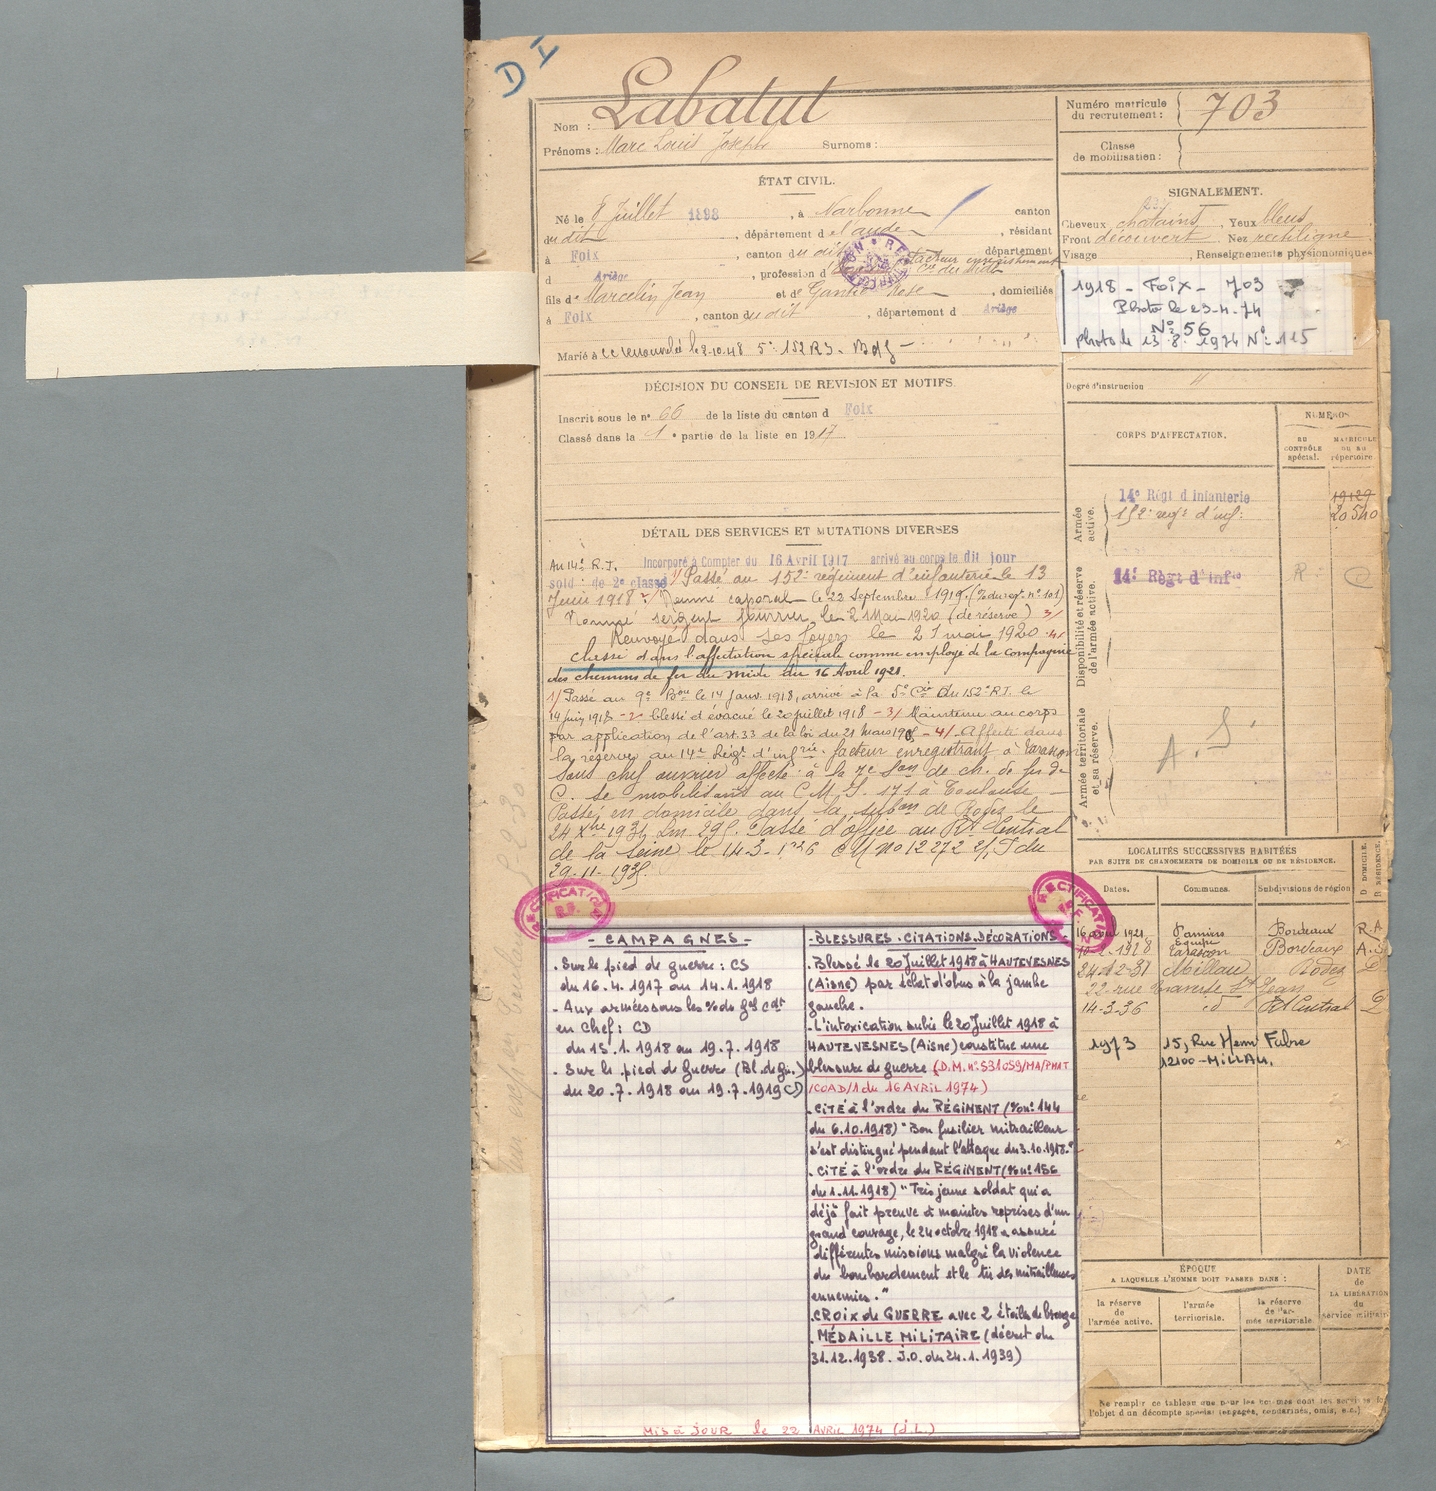 D I
Nom : Labatut
Prénoms : Marc Louis Joseph Surnoms :
Numéro matricule
du recrutement : 703
Classe
de mobilisation :
ÉTAT CIVIL.
Né le 8 Juillet 1898, à Narbonne canton
du dit, département de l'aude, résidant
à Foix, canton du dit département
d Ariège, profession d facteur enregistrant
Cie du Midi
fils de Marcelin Jean et de Rose, domiciliés
à Foix, canton du dit, département d Ariège
Marié à
SIGNALEMENT.
Cheveux chatains, Yeux bleus
Front découvert, Nez rectiligne
Visage, Renseignements physionomiques
1918 - FOIX - 703
Photo le 23-4-74
N° 56
photo le 13.8.1974 N° 115
Degré d'instruction "
DÉCISION DU CONSEIL DE REVISION ET MOTIFS.
Inscrit sous le n° 66 de la liste du canton d Foix
Classé dans la 1e partie de la liste en 1917
CORPS D'AFFECTATION.
NUMÉROS
AU
CONTRÔLE
spécial.
MATRICULE
OU AU
répertoire
Armée
active.
14e Régt d'Infanterie 19129
152e regt d'inf: 20540
Disponibilité et réserve
de l'armée active.
14e Régt d'Infie R
Armée territoriale
et sa réserve.
A.S.
DÉTAIL DES SERVICES ET MUTATIONS DIVERSES
Au 14e R.I. Incorporé à Compter du 16 Avril 1917 arrivé au corps le dit jour
sold: de 2e classe 1/ Passé au 152e régiment d'infanterie le 13
Juin 1918 2/ Nommé caporal le 22 Septembre 1919 (% du regt n° 101)
Nommé sergent fourrier le 2 Mai 1920 (de réserve) 3/
Renvoyé dans ses foyers le 21 mai 1920 4/
classé dans l'affectation spéciale comme employé de la Compagnie
des chemins de fer du midi du 16 Avril 1921.
1/ Passé au 9e Bon le 14 Janv. 1918, arrivé à la 5e Cie du 152e R.I. le
14 juin 1918 - 2/ blessé et évacué le 20 juillet 1918 - 3/ Maintenu au corps
par application de l'art. 33 de la loi du 21 Mars 1905 - 4/ Affecté dans
la réserve au 14e Régt d'infrie. facteur enregistrant à Tarascon
Sous chef ouvrier affecté à la 7e Son de ch. de fer de
C. se mobilisant au C.M.I. 171 à Toulouse -
Passé en domicile dans la subon de Rodez le
24 Xbre 1931. Passé d'office au Rt Central
de la Seine le 14-3-1936 CM no 12272 du
29-11-1935.
RECTIFICATION
RECTIFICATION
LOCALITÉS SUCCESSIVES HABITÉES
PAR SUITE DE CHANGEMENTS DE DOMICILE OU DE RÉSIDENCE.
Dates. Communes. Subdivisions de région
D DOMICILE.
R RÉSIDENCE.
16 avril 1921 Pamiers Bordeaux R.A.
10-2-1928 Equipe Tarascon Bordeaux A.S
24-12-31 Millau Rodez D
22 rue Traverse St Jean
14-3-36 id Rt Central D
1973 15, Rue Henri Fabre
12100-MILLAU.
- CAMPAGNES -
. Sur le pied de guerre : CS
du 16.4.1917 au 14.1.1918
- Aux armées sous les % du Gal Cdt
en Chef : CD
du 15.1.1918 au 19.7.1918
- Sur le pied de Guerre (Bl. de Gu.)
du 20.7.1918 au 19.7.1919 CD
- BLESSURES . CITATIONS . DÉCORATIONS -
. Blessé le 20 Juillet 1918 à HAUTEVESNES
(Aisne) par éclat d'obus à la jambe
gauche.
- L'intoxication subie le 20 Juillet 1918 à
HAUTEVESNES (Aisne) constitue une
blessure de guerre (D.M. n° 531059/MA/PMAT
/COAD/1 du 16 AVRIL 1974)
. CITÉ à l'ordre du RÉGIMENT (% n° 144
du 6.10.1918) "Bon fusilier mitrailleur
s'est distingué pendant l'attaque du 3.10.1918."
. CITÉ à l'ordre du RÉGIMENT (% n° 156
du 1.11.1918) "Très jeune soldat qui a
déjà fait preuve à maintes reprises d'un
grand courage, le 24 octobre 1918 a assuré
différentes missions malgré la violence
du bombardement et le tir des mitrailleuses
ennemies."
. CROIX de GUERRE avec 2 étoiles de bronze
. MÉDAILLE MILITAIRE (décret du
31.12.1938. J.O. du 24.1.1939)
MIS à JOUR le 22 AVRIL 1974 (J.L.)
ÉPOQUE
A LAQUELLE L'HOMME DOIT PASSER DANS :
la réserve
de
l'armée active.
l'armée
territoriale.
la réserve
de l'ar-
mée territoriale.
DATE
de
LA LIBÉRATION
du
service militaire
Ne remplir ce tableau que pour les hommes dont les services font
l'objet d'un décompte spécial (engagés, condamnés, omis, etc.)